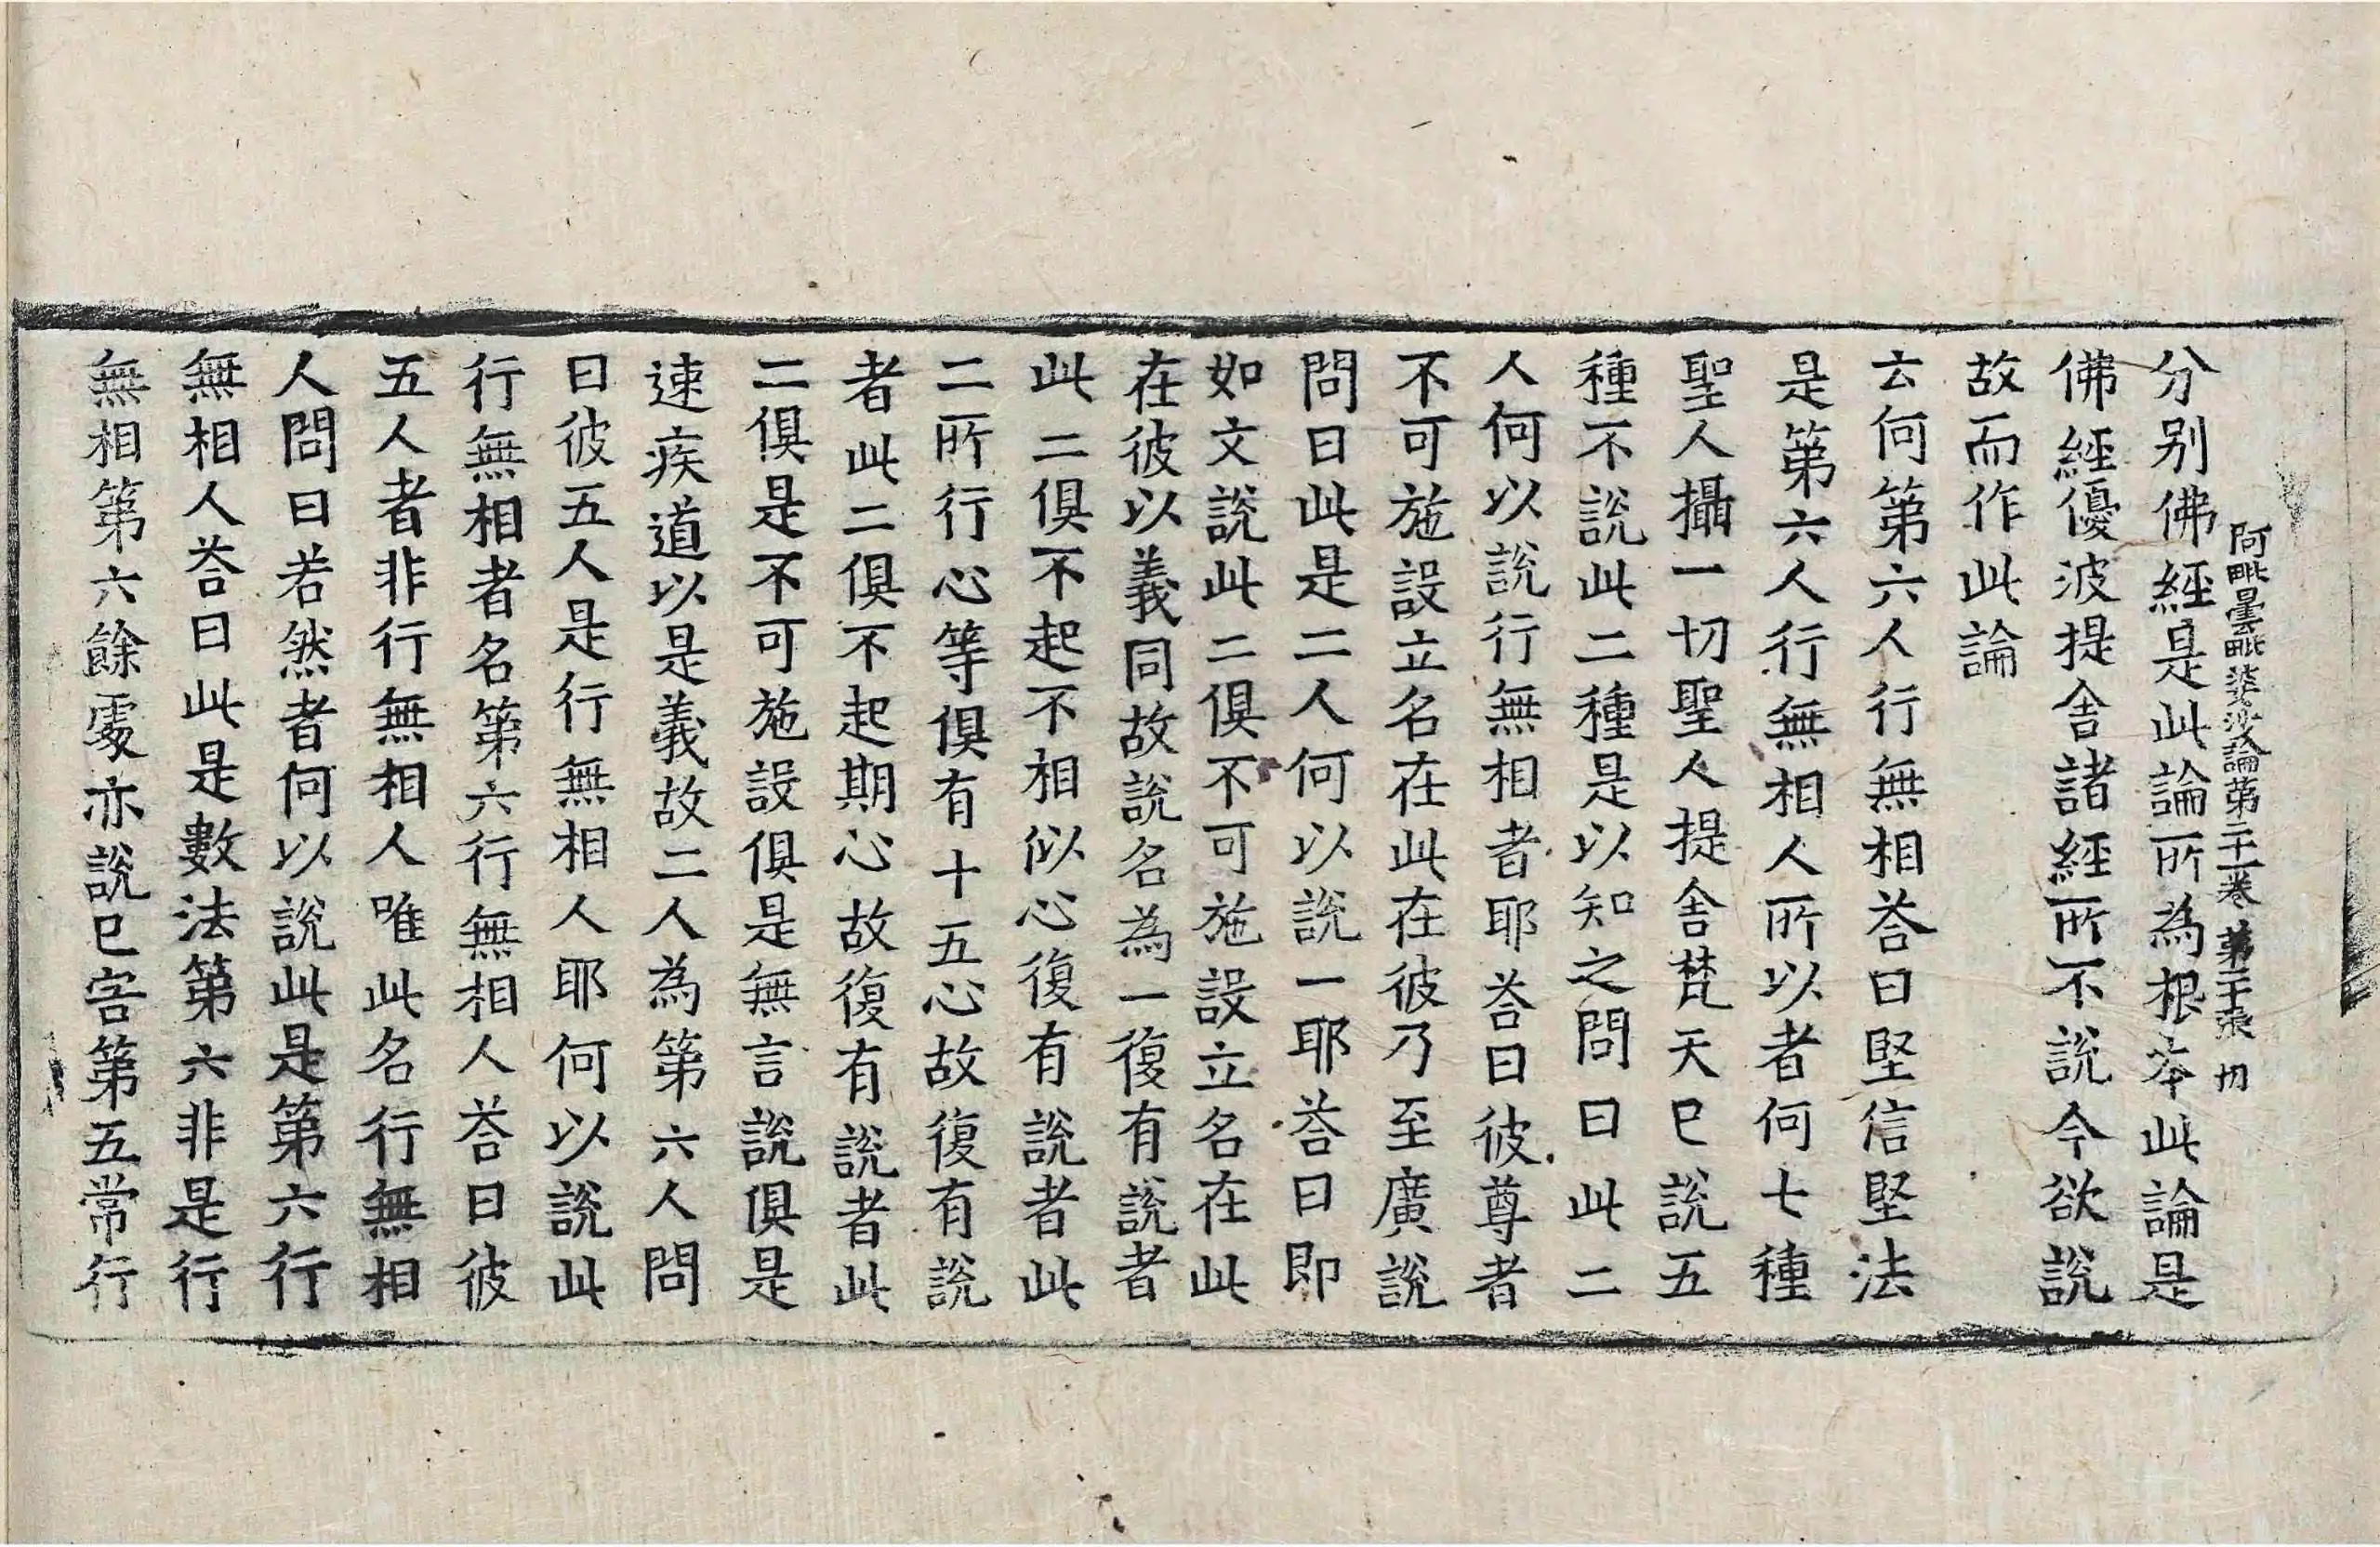 阿毗曇毗婆沙論第二十一卷 第二十張 切
分別佛經是此論所為根本此論是
佛經優波提舍諸經所不說今欲說
故而作此論
云何第六人行無相荅曰堅信堅法
是第六人行無相人所以者何七種
聖人攝一切聖人提舍梵天巳說五
種不說此二種是以知之問曰此二
人何以說行無相者耶荅曰彼尊者
不可施設立名在此在彼乃至廣說
問曰此是二人何以說一耶荅曰即
如文說此二俱不可施設立名在此
在彼以義同故說名為一復有說者
此二俱不起不相似心復有說者此
二所行心等俱有十五心故復有說
者此二俱不起期心故復有說者此
二俱是不可施設俱是無言說俱是
速疾道以是義故二人為第六人問
曰彼五人是行無相人耶何以說此
行無相者名第六行無相人荅曰彼
五人者非行無相人唯此名行無相
人問曰若然者何以說此是第六行
無相人荅曰此是數法第六非是行
無相第六餘處亦說巳害第五常行